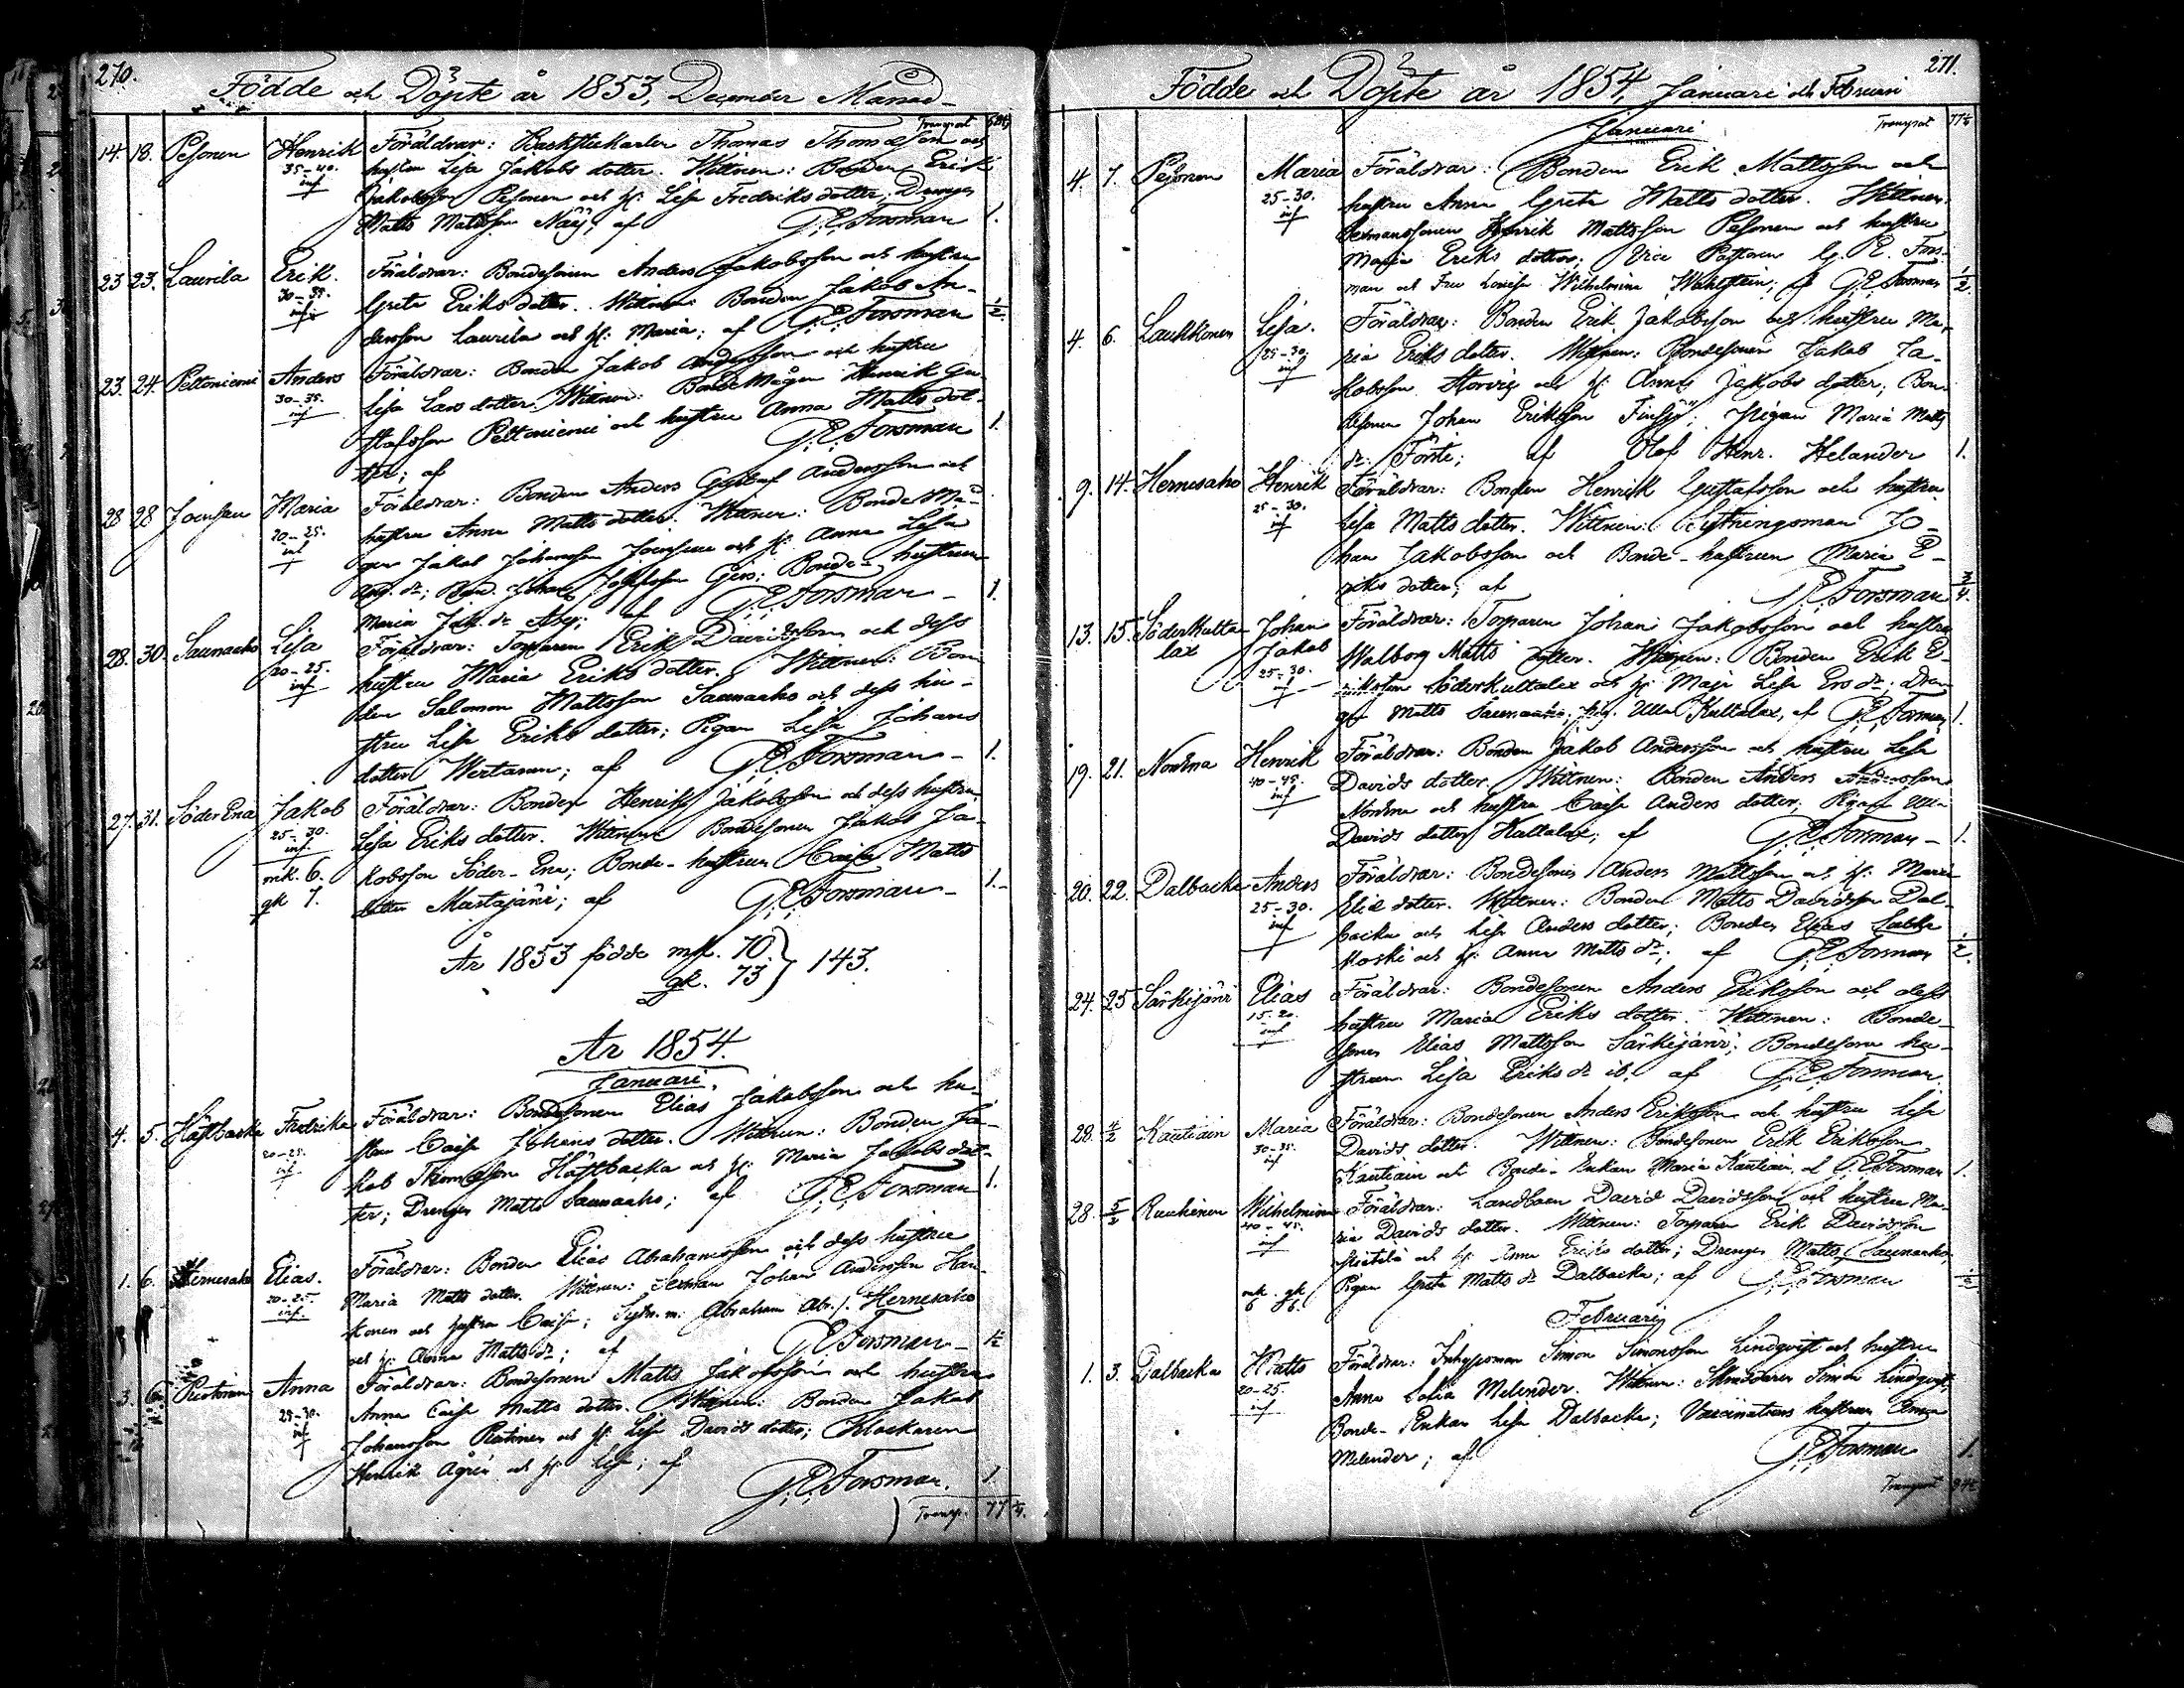 270.
Födde och Döpte år 1853, December Månad
Transport
14. 18. Pesonen Henrik Föräldrar: Backstukarlen Thomas Thomasson och
35-40. hustru Lisa Jakobs dotter. Wittnen: Bonden Erik
inf Jakobsson Pesonen och h: Lisa Fredriks dotter; Drengen
Matts Mattsson Näsi; af G.E. Forsman 1.
23 23. Laurila Erik. Föräldrar: Bondesonen Anders Jakobsson och hustru
30-35. Greta Eriks dotter. Wittnen: Bonden Jakob An-
inf: dersson Laurila och h: Maria; af G.E. Forsman ½.
23. 24. Peltoniemi Anders Föräldrar: Bonden Jakob Andersson och hustru
30-35. Lisa Lars dotter. Wittnen: BondeMågen Henrik Gu-
inf stafsson Peltoniemi och hustru Anna Matts dot-
ter; af G.E. Forsman 1.
28 28 Jounsen Maria Föräldrar: Bonden Anders Gustaf Andersson och
20-25. hustru Anna Matts dotter. Wittnen: Bonde Må-
inf gen Jakob Johansson Jounsen och h: Anna Lisa
And. dr; Bond. Johan Josefsson Gers: Bonde-hustrun
Maria Jak. dr Åby; af G.E. Forsman 1.
28. 30. Saunaaho Lisa Föräldrar: Torparen Erik Davidsson och dess
20-25. hustru Maria Eriks dotter. Wittnen: Bon-
inf den Salomon Mattsson Saunaaho och dess hu-
stru Lisa Eriks dotter; Pigan Lisa Johans
dotter Wertanen; af G.E. Forsman 1.
27. 31. SöderEna Jakob Föräldrar: Bonden Henrik Jakobsson och dess hustru
25-30. Lisa Eriks dotter. Wittnen: Bondesonen Jakob Ja-
inf. kobsson Söder-Ena; Bonde-hustrun Caisa Matts
mk. 6. dotter Mustajärvi; af G.E. Forsman 1.
qk 7.
År 1853 födde mk. 70. } 143.
qk. 73
År 1854.
Januari.
4. 5. Häftbacka Fredrika Föräldrar: Bondesonen Elias Jakobsson och hu-
20-25. stru Caisa Johans dotter. Wittnen: Bonden Ja-
inf kob Thomasson Häftbacka och h: Maria Jakobs dot-
ter; Drengen Matts Saunaaho; af G.E. Forsman 1.
1. 6. Hernesaho Elias. Föräldrar: Bonden Elias Abrahamsson och dess hustru
20-25. Maria Matts dotter. Wittnen: Sexman Johan Andersson Han-
inf. konen och hustru Caisa; Sytn. m: Abraham Abr. s. Hernesaho
och h: Anna Matts dr; af G.E. Forsman ½
3. 6 Anna Föräldrar: Bondesonen Matts Jakobsson och hustru
25-30. Anna Caisa Matts dotter. Wittnen: Bonden Jakob
inf Johansson och h: Lisa Davids dotter; Klockaren
Henrik Ågren och h: Lisa; af G.E. Forsman. 1.
Transp. 77 ¼.
271.
Födde och Döpte år 1854, Januari och Februari
Januari Transport 77¼
4. 7. Pesonen Maria Föräldrar: Bonden Erik Mattsson och
25-30. hustru Anna Greta Matts dotter. Wittnen:
inf Sexmanssonen Henrik Mattsson Pesonen och hustru
Maja Eriks dotter; Vice Pastoren G. E. Fors-
man och Fru Lovisa Wilhelmina; af G.E. Forsman ½.
4. 6. Laukkonen Lisa. Föräldrar: Bonden Erik Jakobsson och hustru Ma-
25-30. ria Eriks dotter. Wittnen: Bondesonen Jakob Ja-
inf kobsson Storvig och h: Anna Jakobs dotter; Bon-
desonen Johan Eriksson Finsjö; Pigan Maria Matts
dr. Förste; af Olof Henr. Helander 1.
9. 14. Hernesaho Henrik Föräldrar: Bonden Henrik Gustafsson och hustru
25-30. Lisa Matts dotter. Wittnen: Sytningsman Jo-
inf han Jakobsson och Bonde-hustrun Maria E-
riks dotter; af G.E. Forsman ¾.
13. 15. Söderkulta- Johan Föräldrar: Torparen Johan Jakobsson och hustru
lax Jakob Walborg Matts dotter. Wittnen: Bonden Erik E-
25-30. riksson Söderkultalax och h: Maja Lisa Ers dr; Dren-
inf gen Matts Saunaaho; Pig. Ulla Kultalax, af G.E. Forsman 1.
19. 21. Norrena Henrik Föräldrar: Bonden Jakob Andersson och hustru Lisa
40-45. Davids dotter. Wittnen: Bonden Anders Andersson
inf Norrena och hustru Caisa Anders dotter; Pigan
Davids dotter Kultalax; af G.E. Forsman 1.
20. 22. Dalbacka Anders Föräldrar: Bondesonen Anders Mattsson och h: Maria
25-30. Elias dotter. Wittnen: Bonden Matts Davidsson Dal-
inf backa och Lisa Anders dotter; Bonden Elias
koski och h: Anna Matts dr; af G.E. Forsman ½.
24. 25 Särkijärvi Elias Föräldrar: Bondesonen Anders Eriksson och dess
15-20. hustru Maria Eriks dotter. Wittnen: Bonde-
inf sonen Elias Mattsson Särkijärvi; Bondesons hu-
strun Lisa Eriks dr ib. af G.E. Forsman.
28. 4/2 Kautiain Maria Föräldrar: Bondesonen Anders Eriksson och hustru Lisa
30-35. Davids dotter. Wittnen: Bondesonen Erik Eriksson
inf Kautiain och Bonde-Enkan Maria Kautiain, af G.E. Forsman 1.
28. 5/2 Wilhelmina Föräldrar: Landboen David Davidsson och hustru Ma-
40-45. ria Davids dotter. Wittnen: Torparen Erik Davidsson
inf och h: Anna Eriks dotter; Drengen Matts Saunaaho;
mk. qk Pigan Greta Matts dr Dalbacka; af G.E. Forsman ½
6 6.
Februari
1. 3. Dalbacka Matts Föräldrar: Inhysesman Simon Simonsson Lindqvist och hustru
20-25. Anna Sofia Melender. Wittnen: Skräddaren Simon Lindqvist;
inf Bonde-Enkan Lisa Dalbacka; Vaccinateurs hustrun Anna
Melender; af G.E. Forsman 1.
Transport